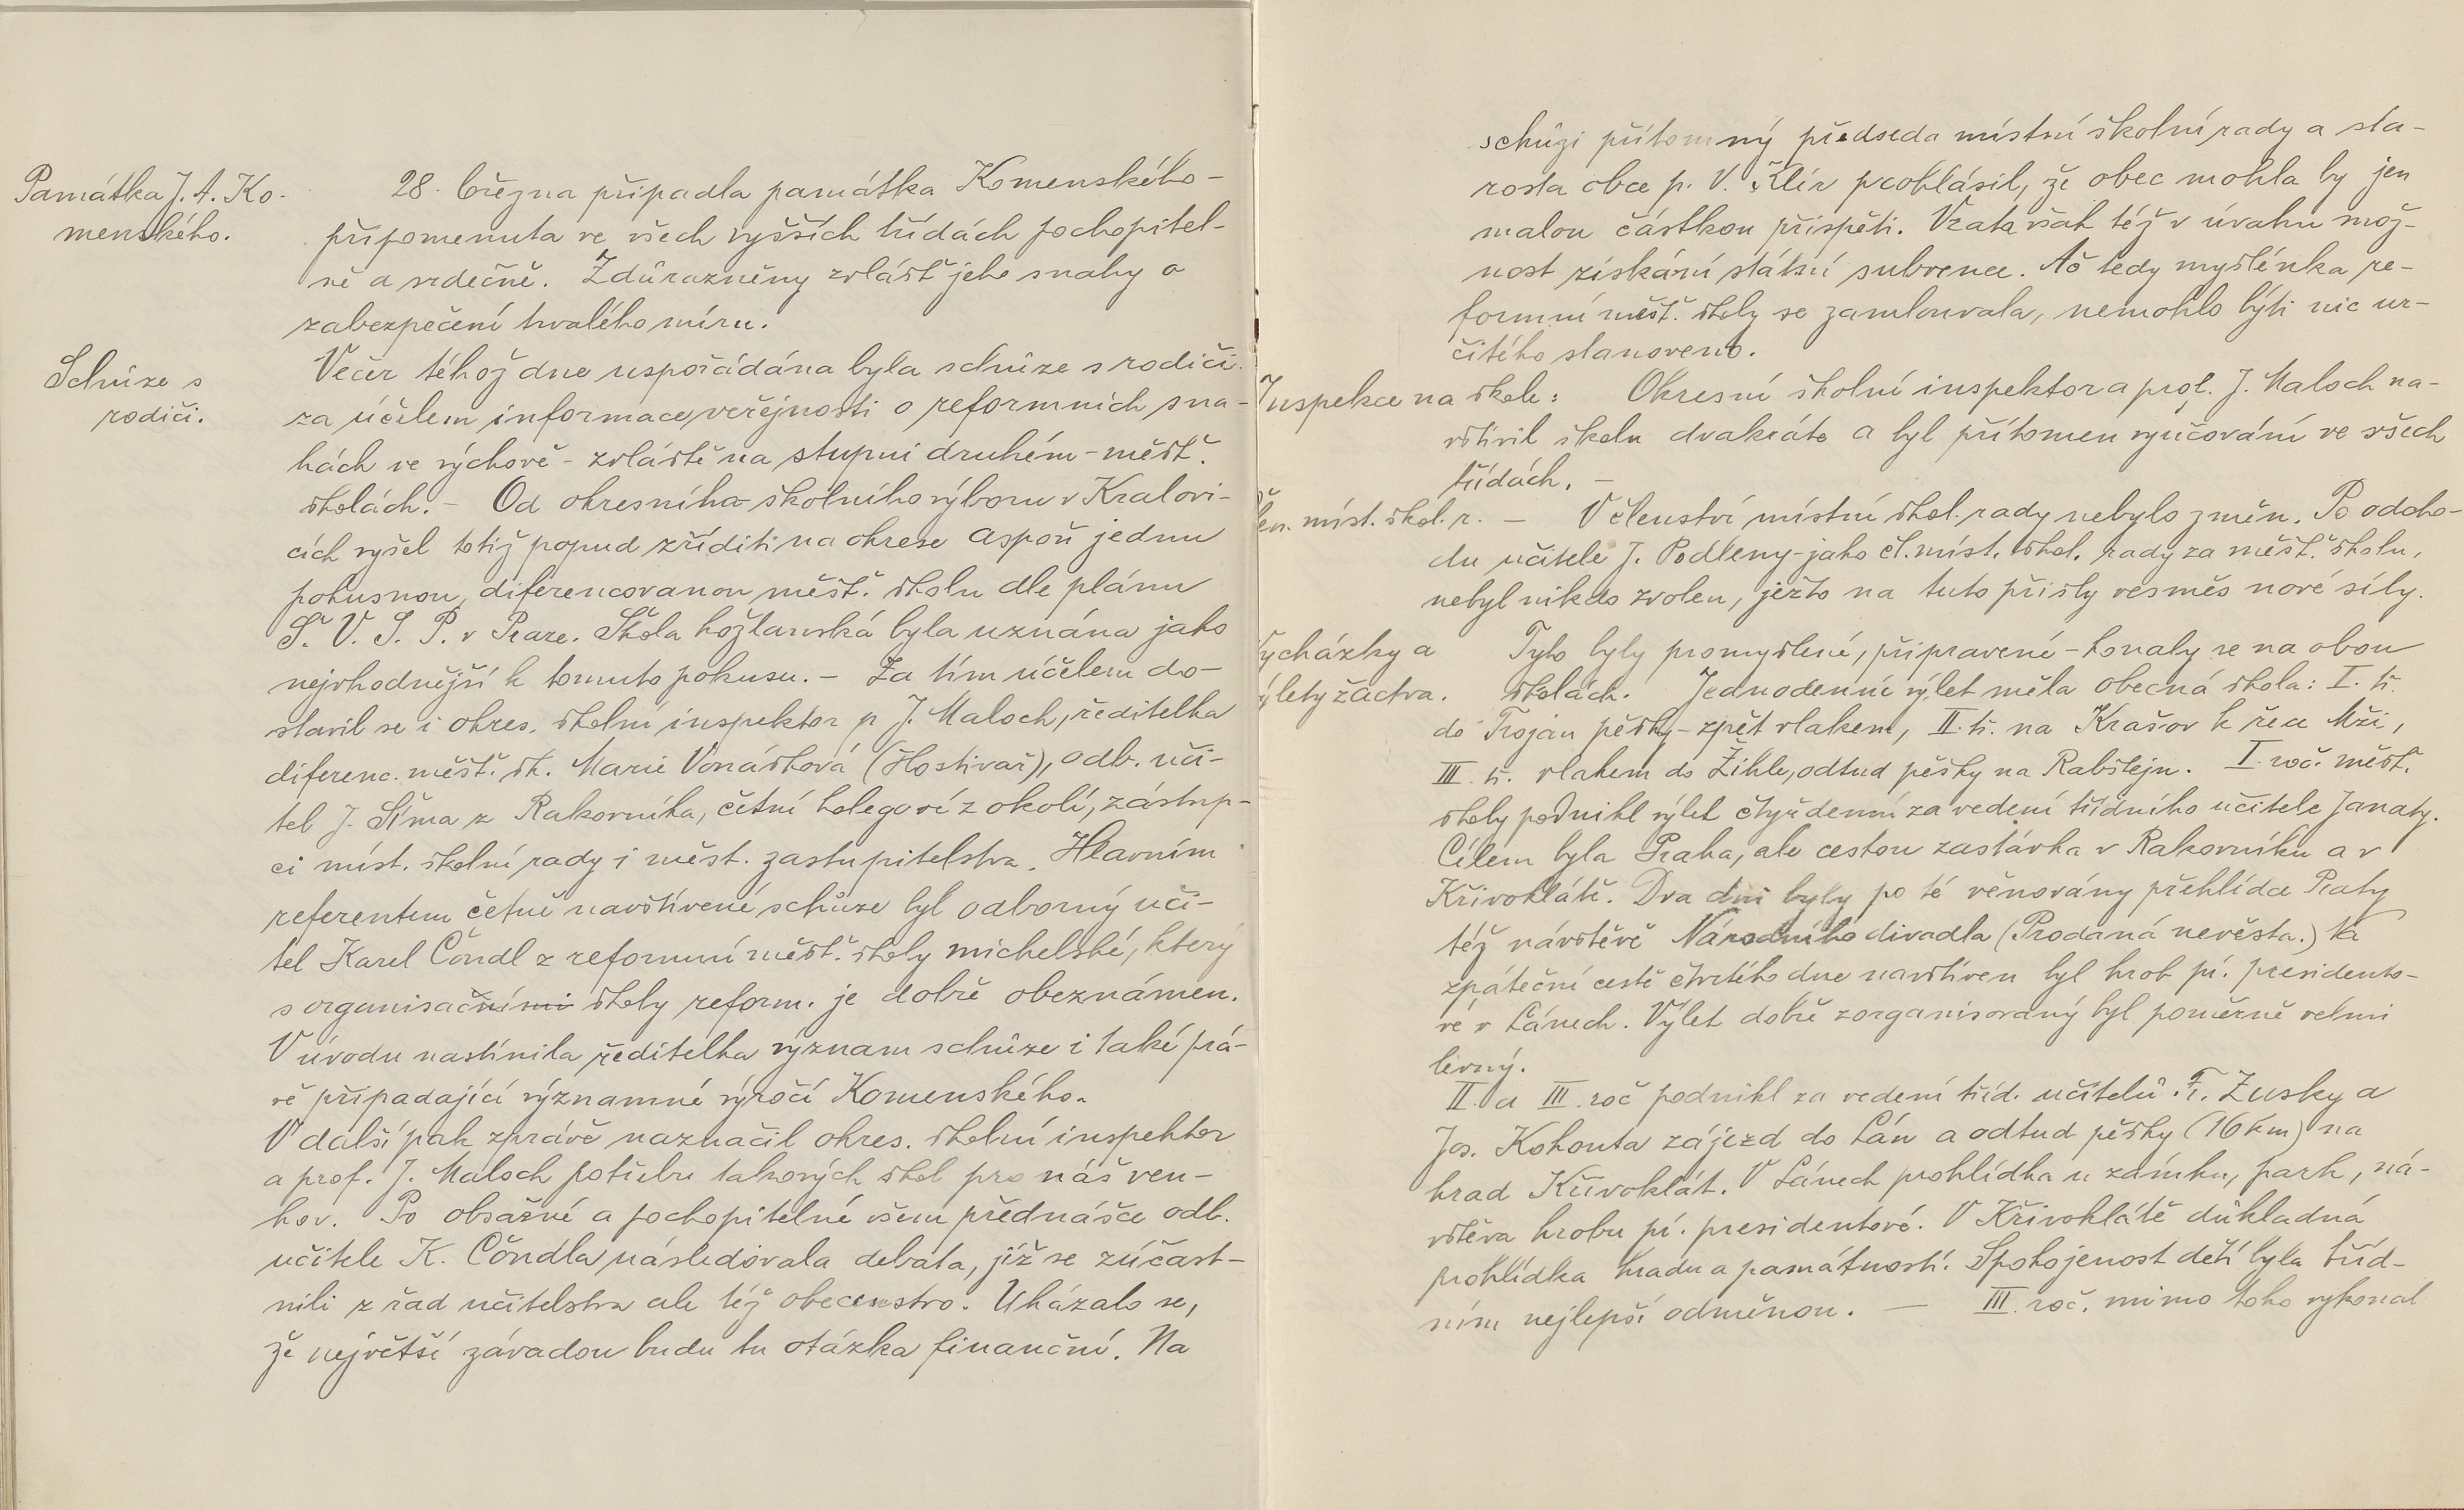 Památka J. A. Ko-
menského.
28. března připadla památka Komenského -
připomenuta ve všech vyšších třídách pochopitel-
ně a srdečně. Zdůrazněny zvlášť jeho snahy o
zabezpečení trvalého míru.
Schůze s
rodiči.
Večer téhož dne uspořádána byla schůze s rodiči
za účelem informace veřejnosti o reformních sna-
hách ve výchově - zvláště na stupni druhém - měšť.
školách. - Od okresního školního výboru v Kralovi-
cích vyšel totiž popud zříditi na okrese aspoň jednu
pokusnou, diferencovanou měšť. školu dle plánu
Š. V. S. P. v Praze. Škola kožlanská byla uznána jako
nejvhodnější k tomuto pokusu. - Za tím účelem do-
stavil se i okres. školní inspektor p J. Maloch, ředitelka
diferenc. měšť. šk. Marie Vonášková (Hostivař), odb. uči-
tel J. Šíma z Rakovníka, četní kolegové z okolí, zástup-
ci míst. školní rady i měst. zastupitelstva. Hlavním
referentem četně navštívené schůze byl odborný uči-
tel Karel Čondl z reformní měšť. školy michelské, který
s organisačními školy reform. je dobře obeznámen.
V úvodu nastínila ředitelka význam schůze i také prá-
vě připadající významné výročí Komenského.
V další pak zprávě naznačil okres. školní inspektor
a prof. J. Maloch potřebu takových škol pro náš ven-
kov. Po obsažné a pochopitelné všem přednášce odb.
učitele K. Čondla následovala debata, jíž se zúčast-
nili z řad učitelstva ale též obecenstvo. Ukázalo se,
že největší závadou budu tu otázka finanční. Na
schůzi přítomný předseda místní školní rady a sta-
rosta obce p. V. Klír prohlásil, že obec mohla by jen
malou částkou přispěti. Vzata však též v úvahu mož-
nost získání státní subvence. Ač tedy myšlénka re-
formní měšť. školy se zamlouvala, nemohlo býti nic ur-
čitého stanoveno.
Inspekce na škole: Okresní školní inspektor a prof. J. Maloch na-
vštívil školu dvakráte a byl přítomen vyučování ve všech
třídách. -
Člen. míst. škol. r. - V členství místní škol. rady nebylo změn. Po odcho-
du učitele J. Podleny - jako čl. míst. škol. rady za měšť. školu,
nebyl nikdo zvolen, ježto na tuto přišly vesměs nové síly.
Vycházky a
výlety žactva.
Tyto byly promyšlené, připravené - konaly se na obou
školách. Jednodenní výlet měla obecná škola: I. tř.
do Trojan pěšky - zpět vlakem, II. tř. na Krašov k řece Mži,
III. tř. vlakem do Žihle, odtud pěšky na Rabštejn. I. roč. měšť.
školy podnikl výlet čtyřdenní za vedení třídního učitele Janaty.
Cílem byla Praha, ale cestou zastávka v Rakovníku a v
Křivoklátě. Dva dni byly po té věnovány přehlídce Prahy
též návštěvě Národního divadla (Prodaná nevěsta.) Na
zpáteční cestě čtvrtého dne navštíven byl hrob pí. presidento-
vé v Lánech. Výlet dobře zorganisovaný byl poměrně velmi
levný.
II. a III. roč podnikl za vedení tříd. učitelů Fr. Zusky a
Jos. Kohouta zájezd do Lán a odtud pěšky (16 km) na
hrad Křivoklát. V Lánech prohlídka u zámku, park, ná-
vštěva hrobu pí. presidentové. V Křivoklátě důkladná
prohlídka hradu a památností. Spokojenost dětí byla tříd-
ním nejlepší odměnou. - III. roč. mimo toho vykonal